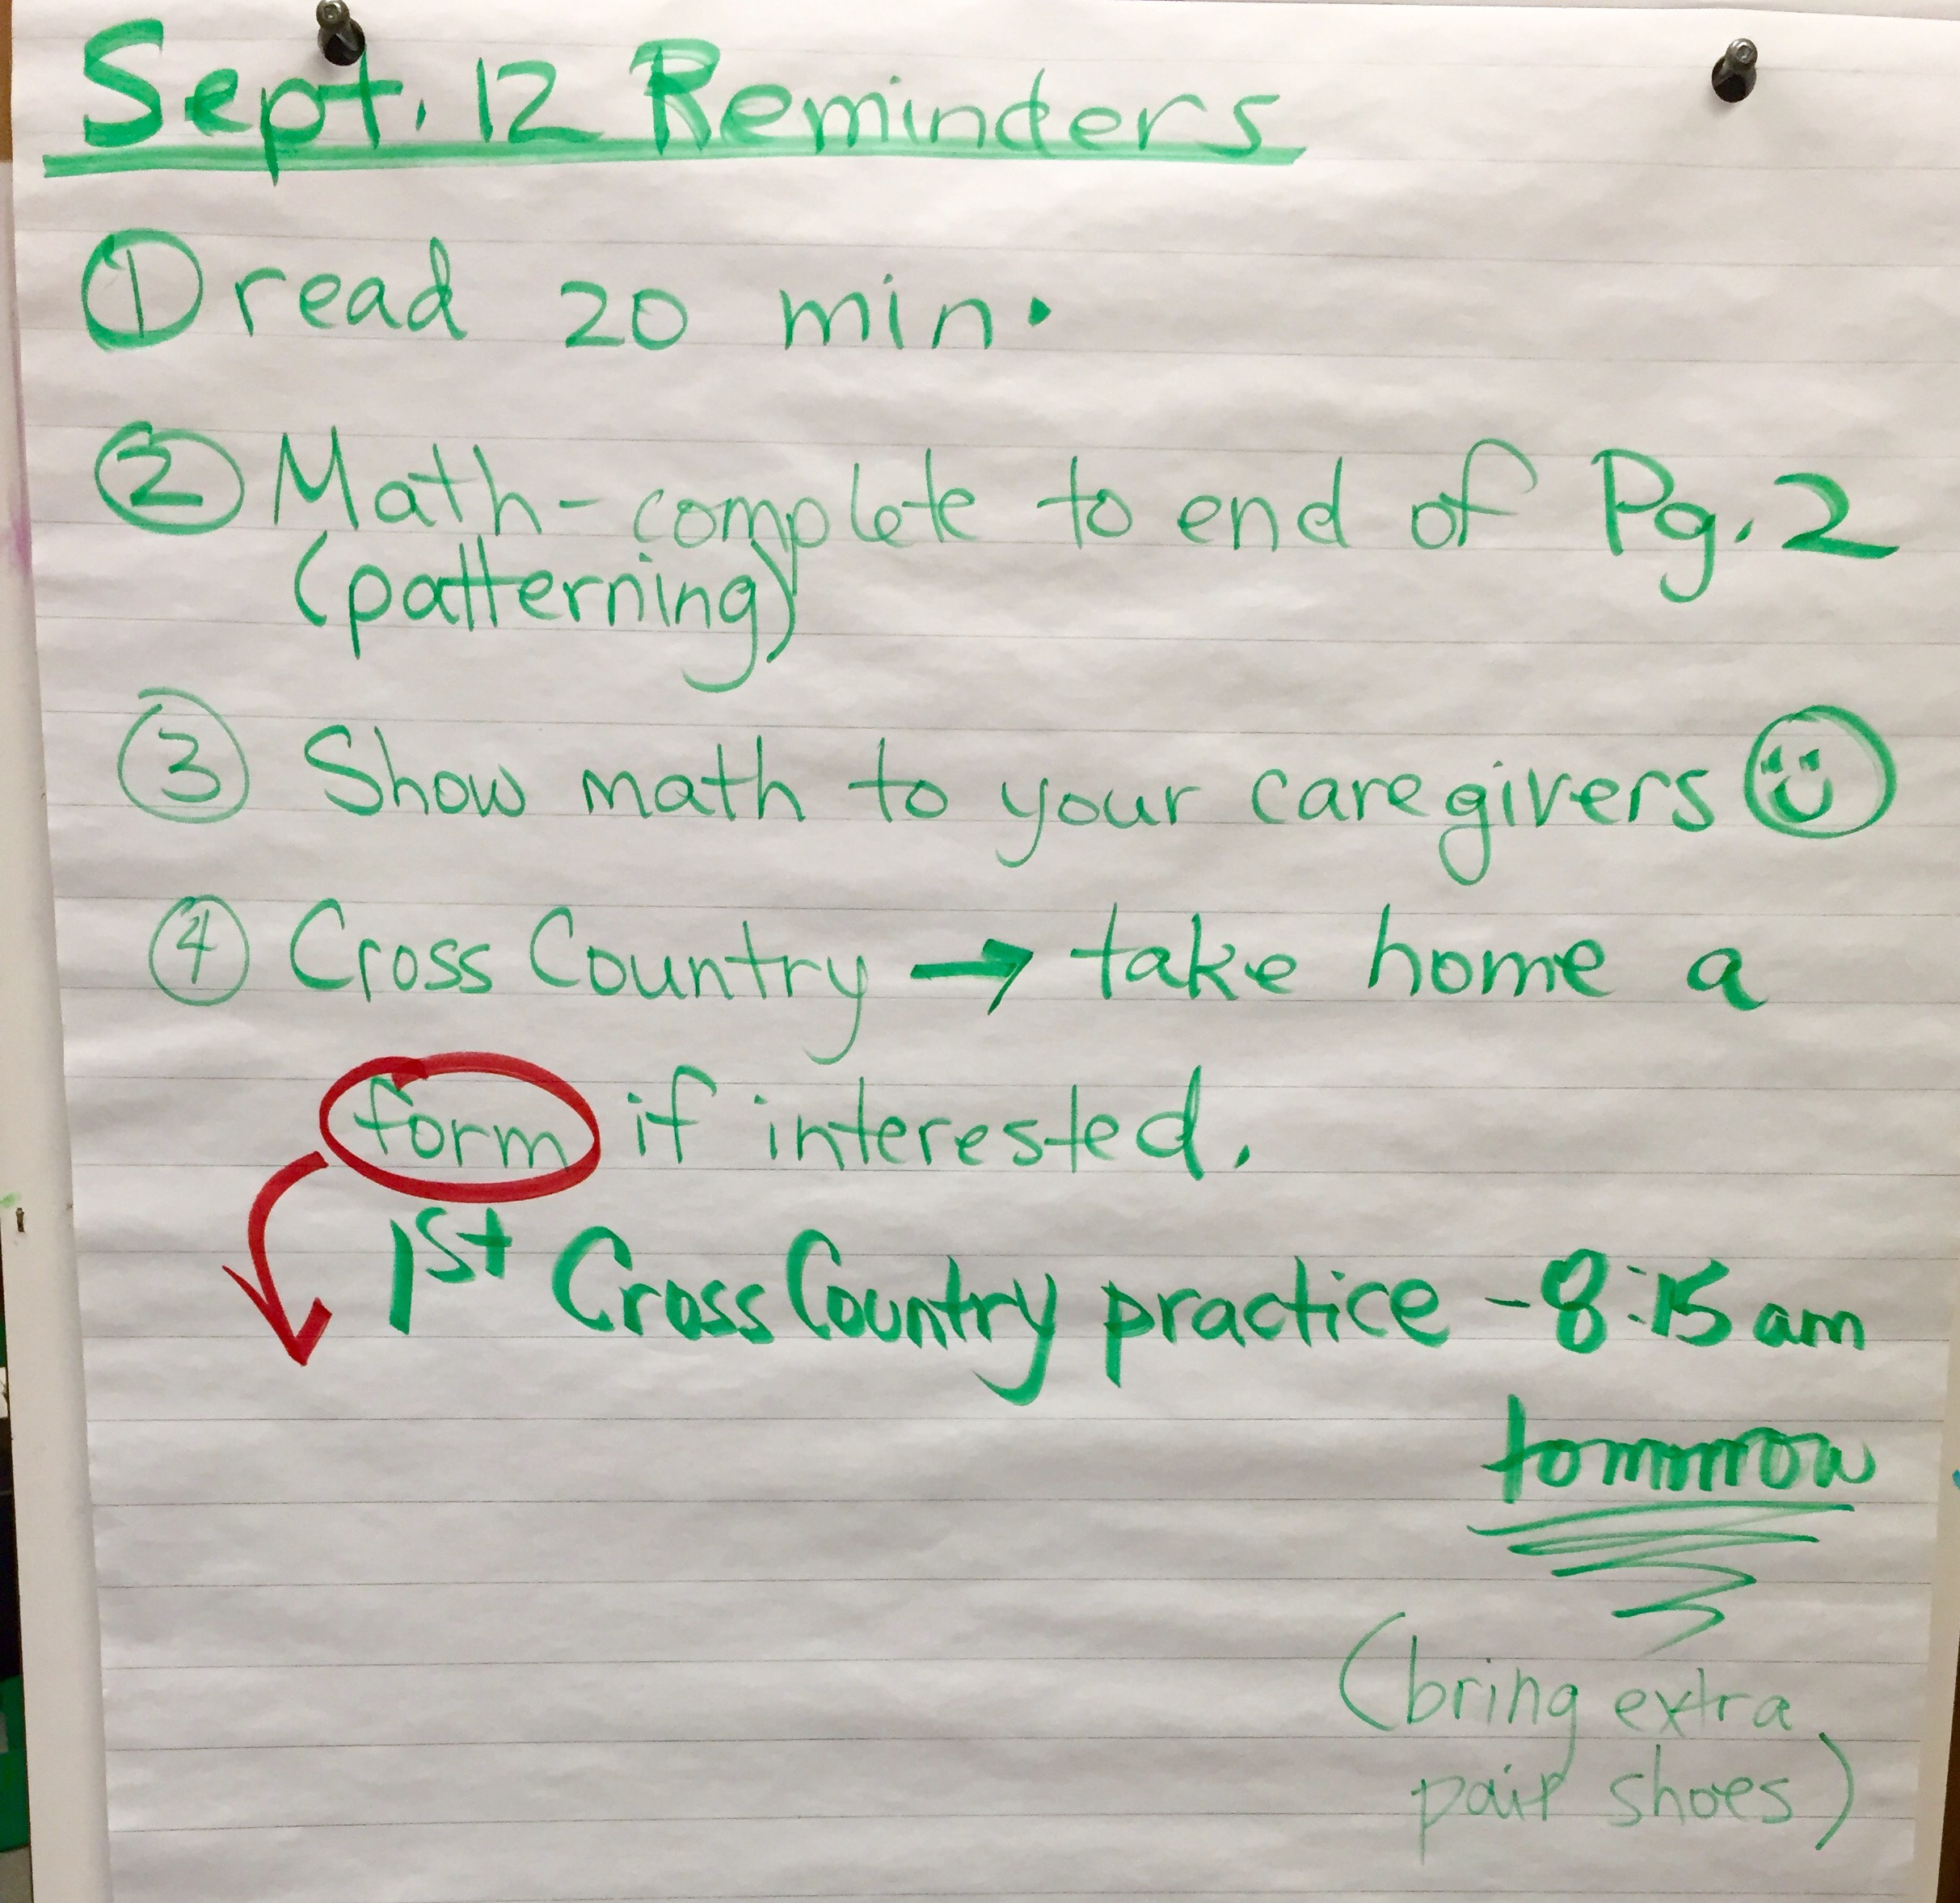 Sept. 12 Reminders
① read 20 min.
② Math - complete to end of Pg. 2
(patterning)
③ Show math to your caregivers
④ Cross Country → take home a
form if interested.
1st Cross Country practice - 8:15 am
tommrow
(bring extra
pair shoes)